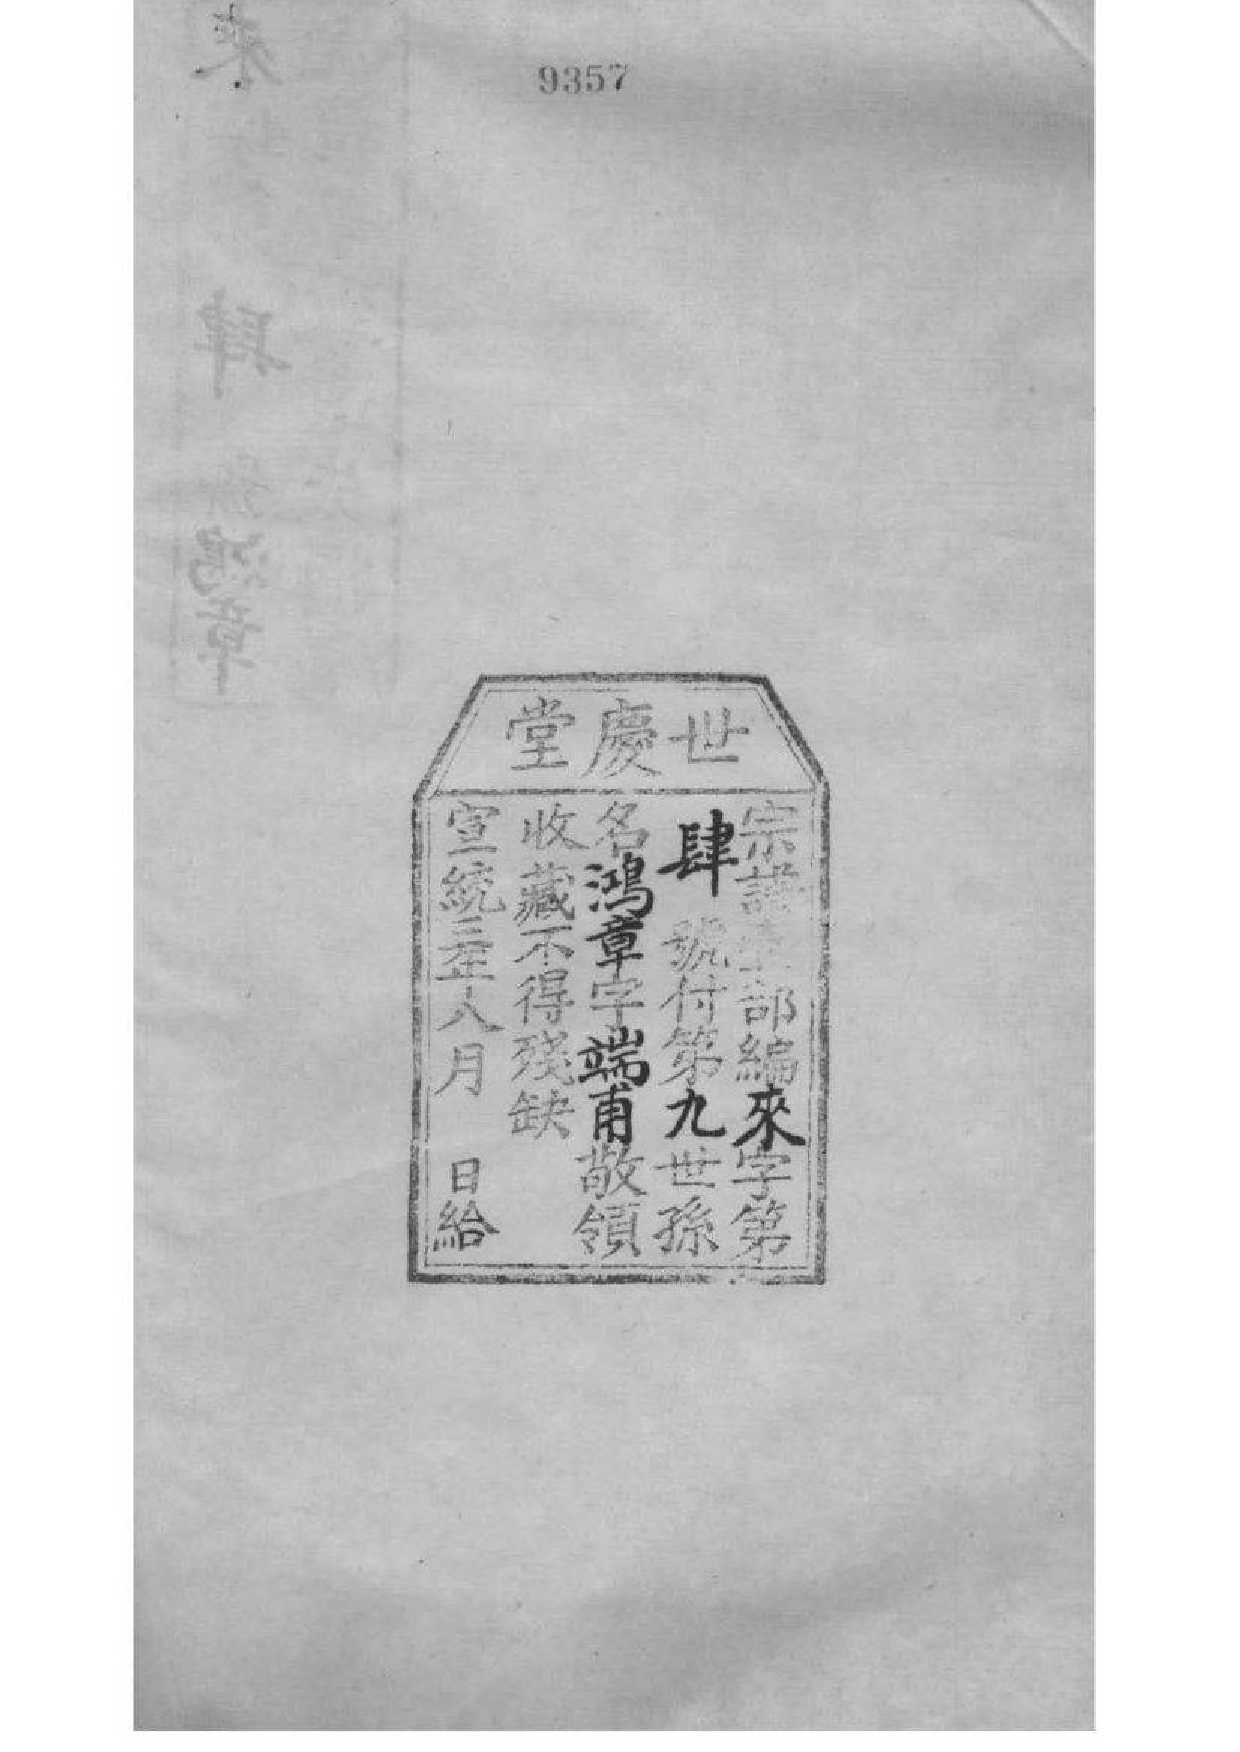 9357
世慶堂
宗譜全部編來字第
肆號付第九世孫
名鴻章字端甫敬領
收藏不得殘缺
宣統三年八月 日給
來
肆
鴻章